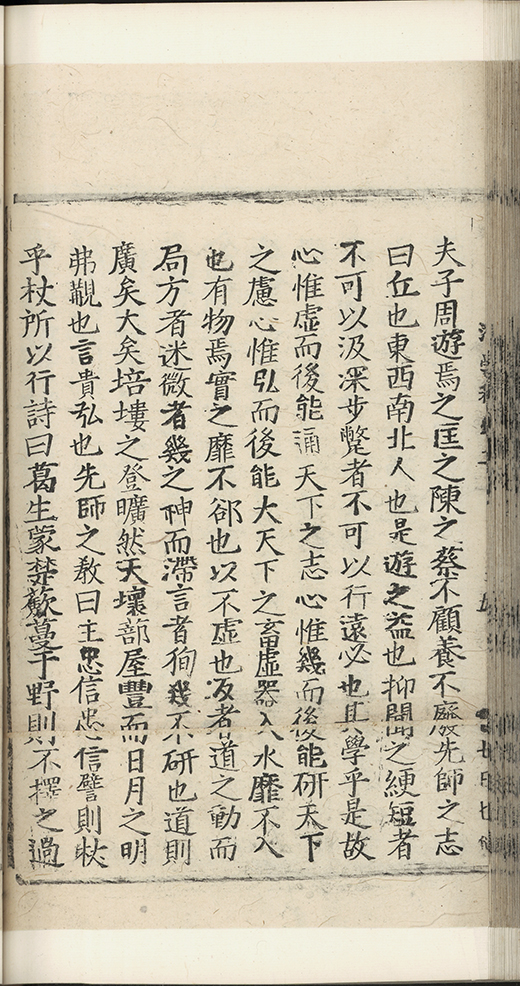 夫子周遊焉之匡之陳之蔡不顧養不廢先師之志
曰丘也東西南北人也是遊之益也抑聞之綆短者
不可以汲深步蹩者不可以行遠必也其學乎是故
心惟虛而後能通天下之志心惟幾而後能研天下
之慮心惟弘而後能大天下之畜虛器入水靡不入
也有物焉實之靡不郤也以不虛也反者道之動而
局方者迷微者幾之神而滯言者徇幾不研也道則
廣矣大矣培塿之登曠然天壤蔀屋豐而日月之明
弗覯也言貴弘也先師之教曰主忠信忠信譬則杖
乎杖所以行詩曰葛生蒙楚蘞蔓于野則不擇之過